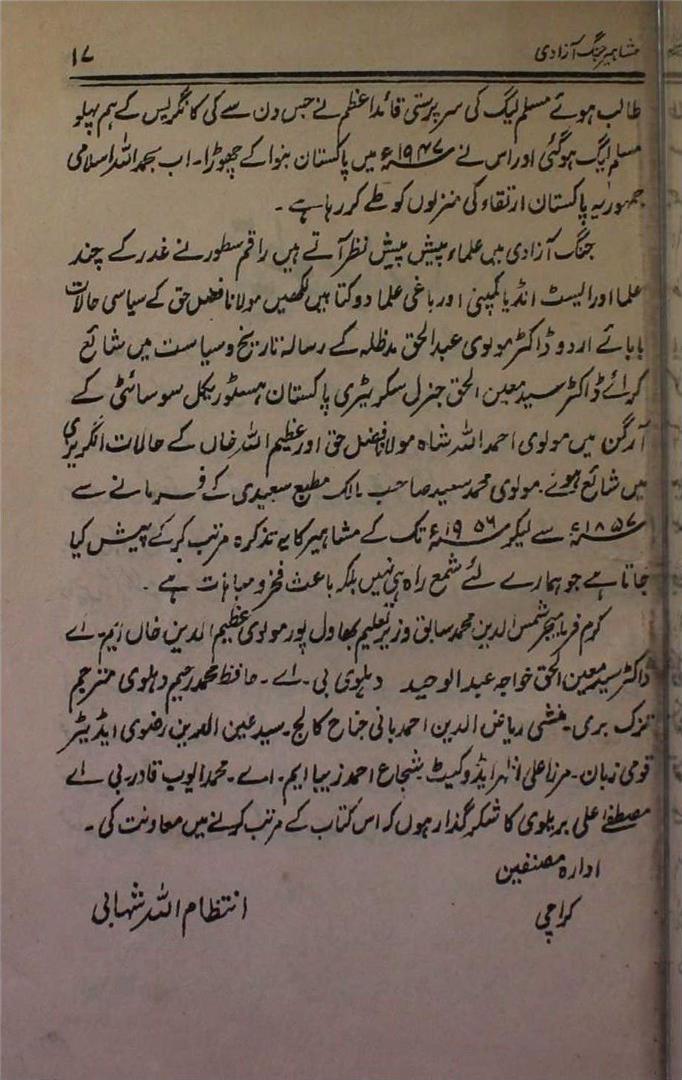 مشاہیر جنگ آزادی ۱۷
طالب ہوئے مسلم لیگ کی سرپرستی قائداعظم نے جس دن سے کی کانگریس کے ہم پہلو
مسلم لیگ ہوگئی اور اس نے ۱۹۴۷ء میں پاکستان بنوا کے چھوڑا۔ اب بحمد اللہ اسلامی
جمہوریہ پاکستان ارتقاء کی منزلوں کو طے کر رہا ہے۔
جنگ آزادی میں علماء پیش پیش نظر آتے ہیں راقم سطور نے غدر کے چند
علما اور ایسٹ انڈیا کمپنی اور باغی علما دو کتابیں لکھیں مولانا فضل حق کے سیاسی حالات
بابائے اردو ڈاکٹر مولوی عبدالحق مدظلہ کے رسالہ تاریخ و سیاست میں شائع
کرائے ڈاکٹر سید معین الحق جنرل سکریٹری پاکستان ہسٹوریکل سوسائٹی کے
آرگن میں مولوی احمد اللہ شاہ مولانا فضل حق اور عظیم اللہ خاں کے حالات انگریزی
میں شائع ہوئے۔ مولوی محمد سعید صاحب مالک مطبع سعیدی کے فرمانے سے
۱۸۵۷ء سے لیکر ۱۹۵۶ء تک کے مشاہیر کا یہ تذکرہ مرتب کرکے پیش کیا
جاتا ہے جو ہمارے لئے شمع راہ ہی نہیں بلکہ باعث فخر و مباہات ہے۔
کرم فرما میجر شمس الدین محمد سابق وزیر تعلیم بھاول پور مولوی عظیم الدین خاں ایم۔ اے
ڈاکٹر سید معین الحق خواجہ عبدالوحید دہلوی بی۔ اے۔ حافظ محمد رحیم دہلوی مترجم
تزک بری۔ منشی ریاض الدین احمد بانی جناح کالج۔ سید عین الدین رضوی ایڈیٹر
قومی زبان۔ مرزا علی اظہر ایڈوکیٹ شجاع احمد زیبا ایم۔ اے۔ محمد ایوب قادر۔ بی اے
مصطفے علی بریلوی کا شکر گذار ہوں کہ اس کتاب کے مرتب کرنے میں معاونت کی۔
ادارہ مصنفین
کراچی انتظام اللہ شہابی